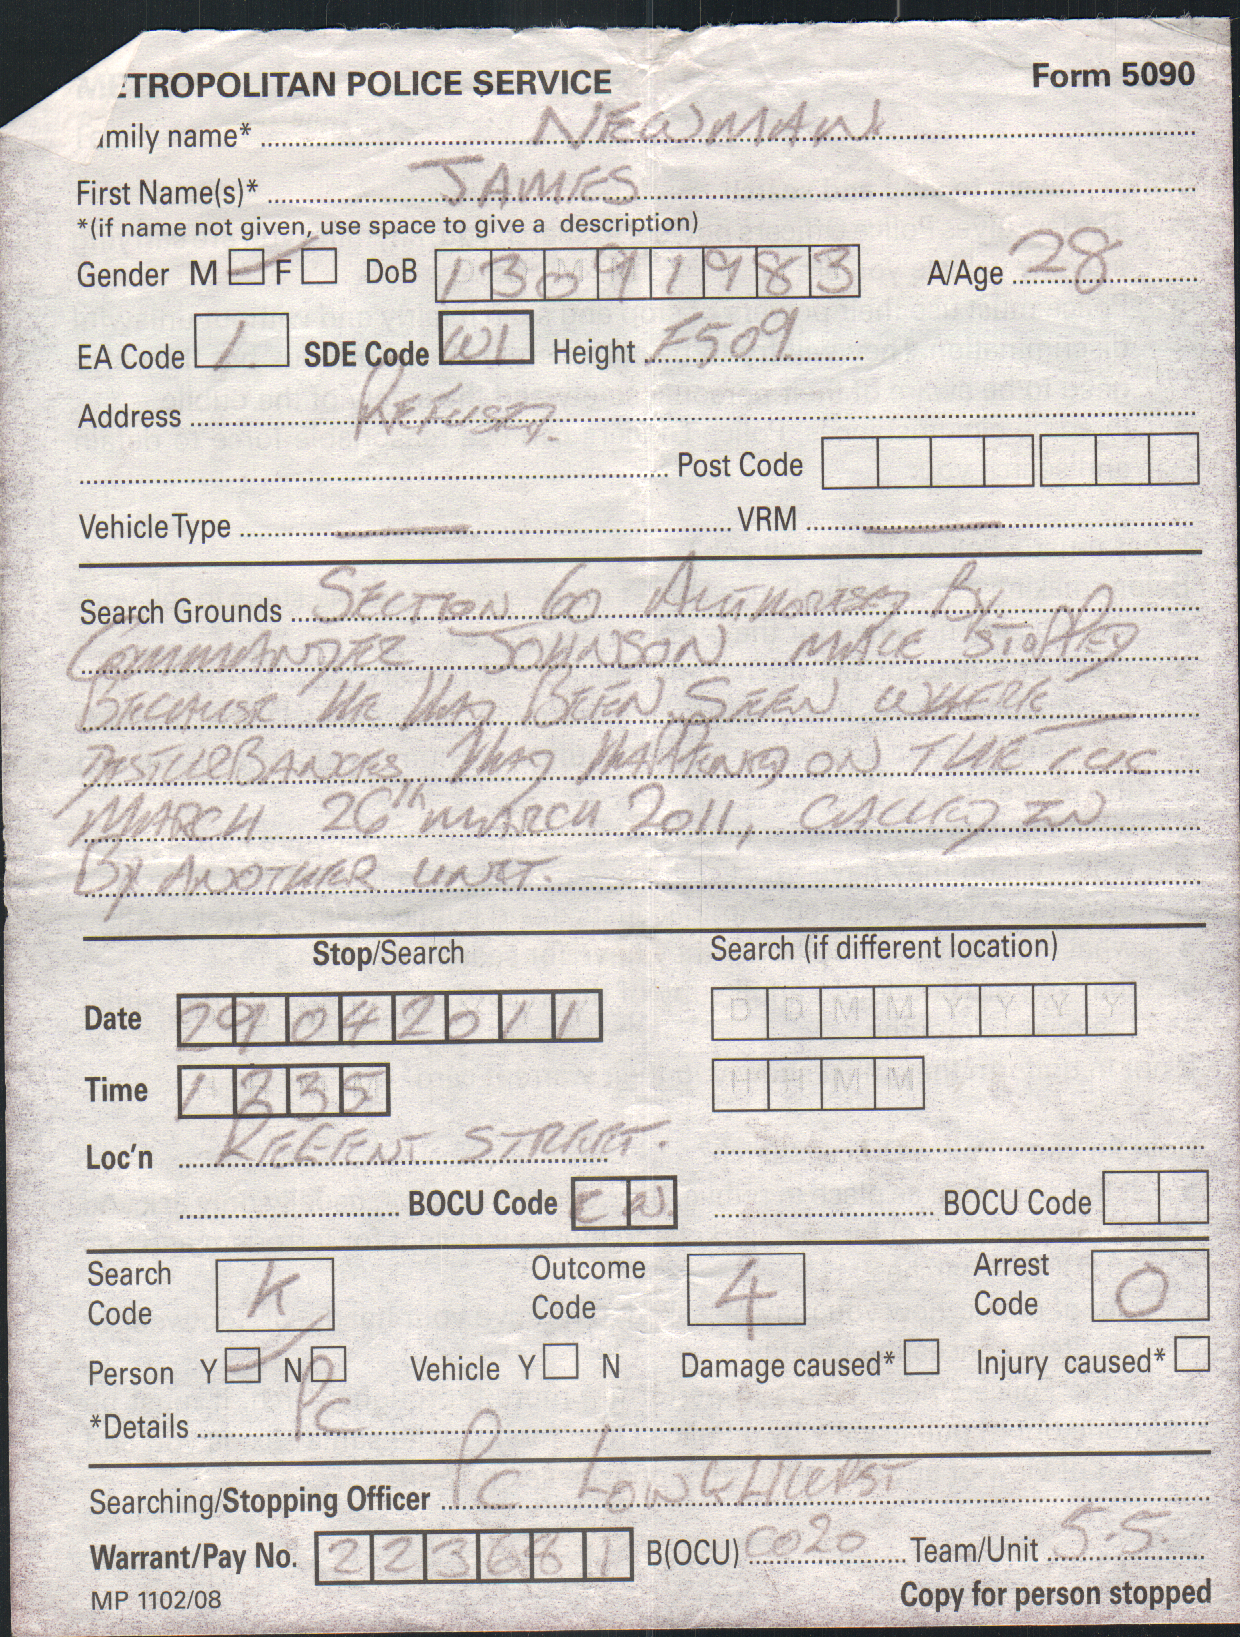 ETROPOLITAN POLICE SERVICE Form 5090
amily name* NEWMAN
First Name(s)* JAMES
*(if name not given, use space to give a description)
Gender M F DoB 13091983 A/Age 28
EA Code 1 SDE Code W1 Height F509
Address REFUSED.
Post Code
Vehicle Type — VRM —
Search Grounds SECTION 60 AUTHORISED BY
COMMANDER JOHNSON MALE STOPPED
BECAUSE HE HAD BEEN SEEN WHERE
DISTURBANCES HAD HAPPENED ON THE TUC
MARCH 26th MARCH 2011, CALLED IN
BY ANOTHER UNIT.
Stop/Search Search (if different location)
Date 29042011 D D M M Y Y Y Y
Time 1235 H H M M
Loc'n REGENT STREET.
BOCU Code CW BOCU Code
Search Code K Outcome Code 4 Arrest Code 0
Person Y N Vehicle Y N Damage caused* Injury caused*
*Details PC
Searching/Stopping Officer PC LONGHURST
Warrant/Pay No. 223681 B(OCU) CO20 Team/Unit 5-5.
MP 1102/08 Copy for person stopped